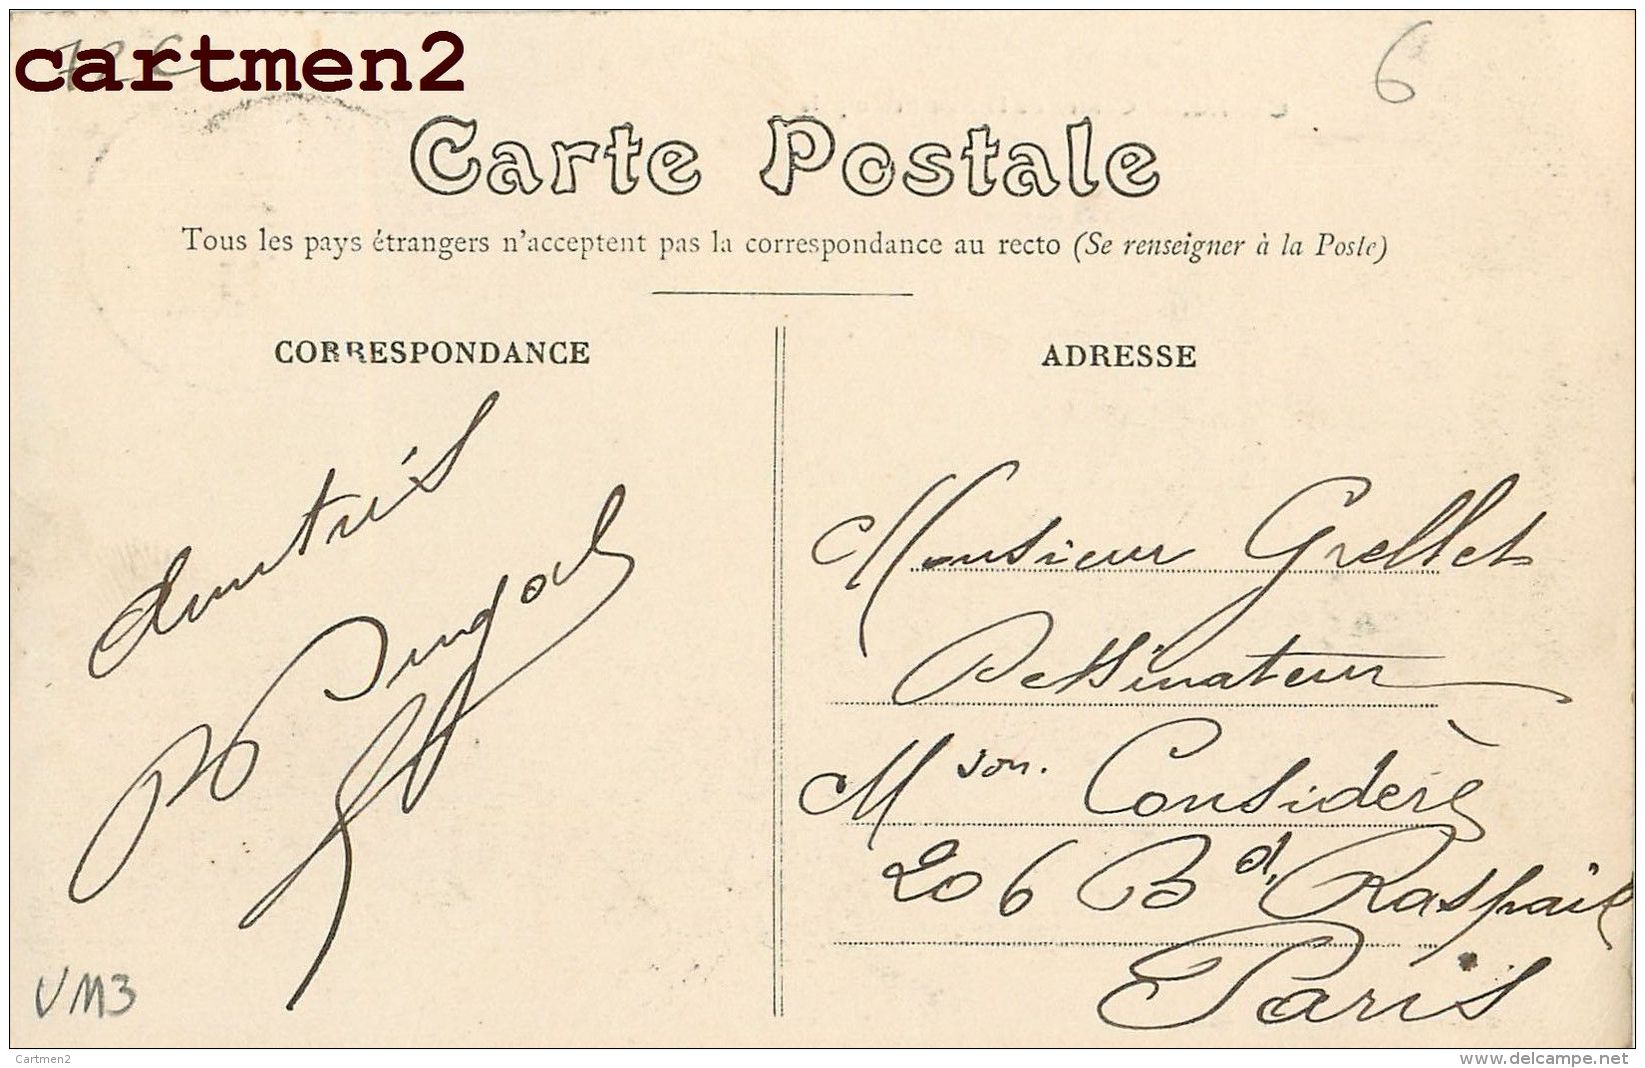 cartmen2
6
Carte Postale
Tous les pays étrangers n'acceptent pas la correspondance au recto (Se renseigner à la Poste)
CORRESPONDANCE
ADRESSE
Monsieur Grellet
Dessinateur
Mson. Considère
206 Bd. Raspail
Paris
VM3
Cartmen2
www.delcampe.net